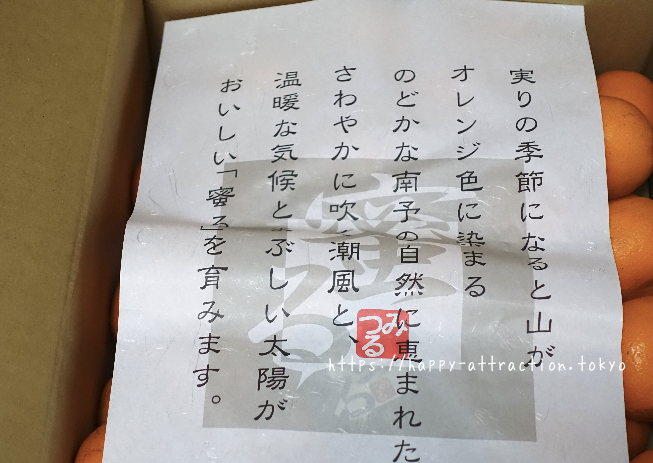 実りの季節になると山が
オレンジ色に染まる
のどかな南予の自然に恵まれた
さわやかに吹く潮風と、
温暖な気候とまぶしい太陽が
おいしい「蜜る」を育みます。
蜜る
みつる
https://happy-attraction.tokyo